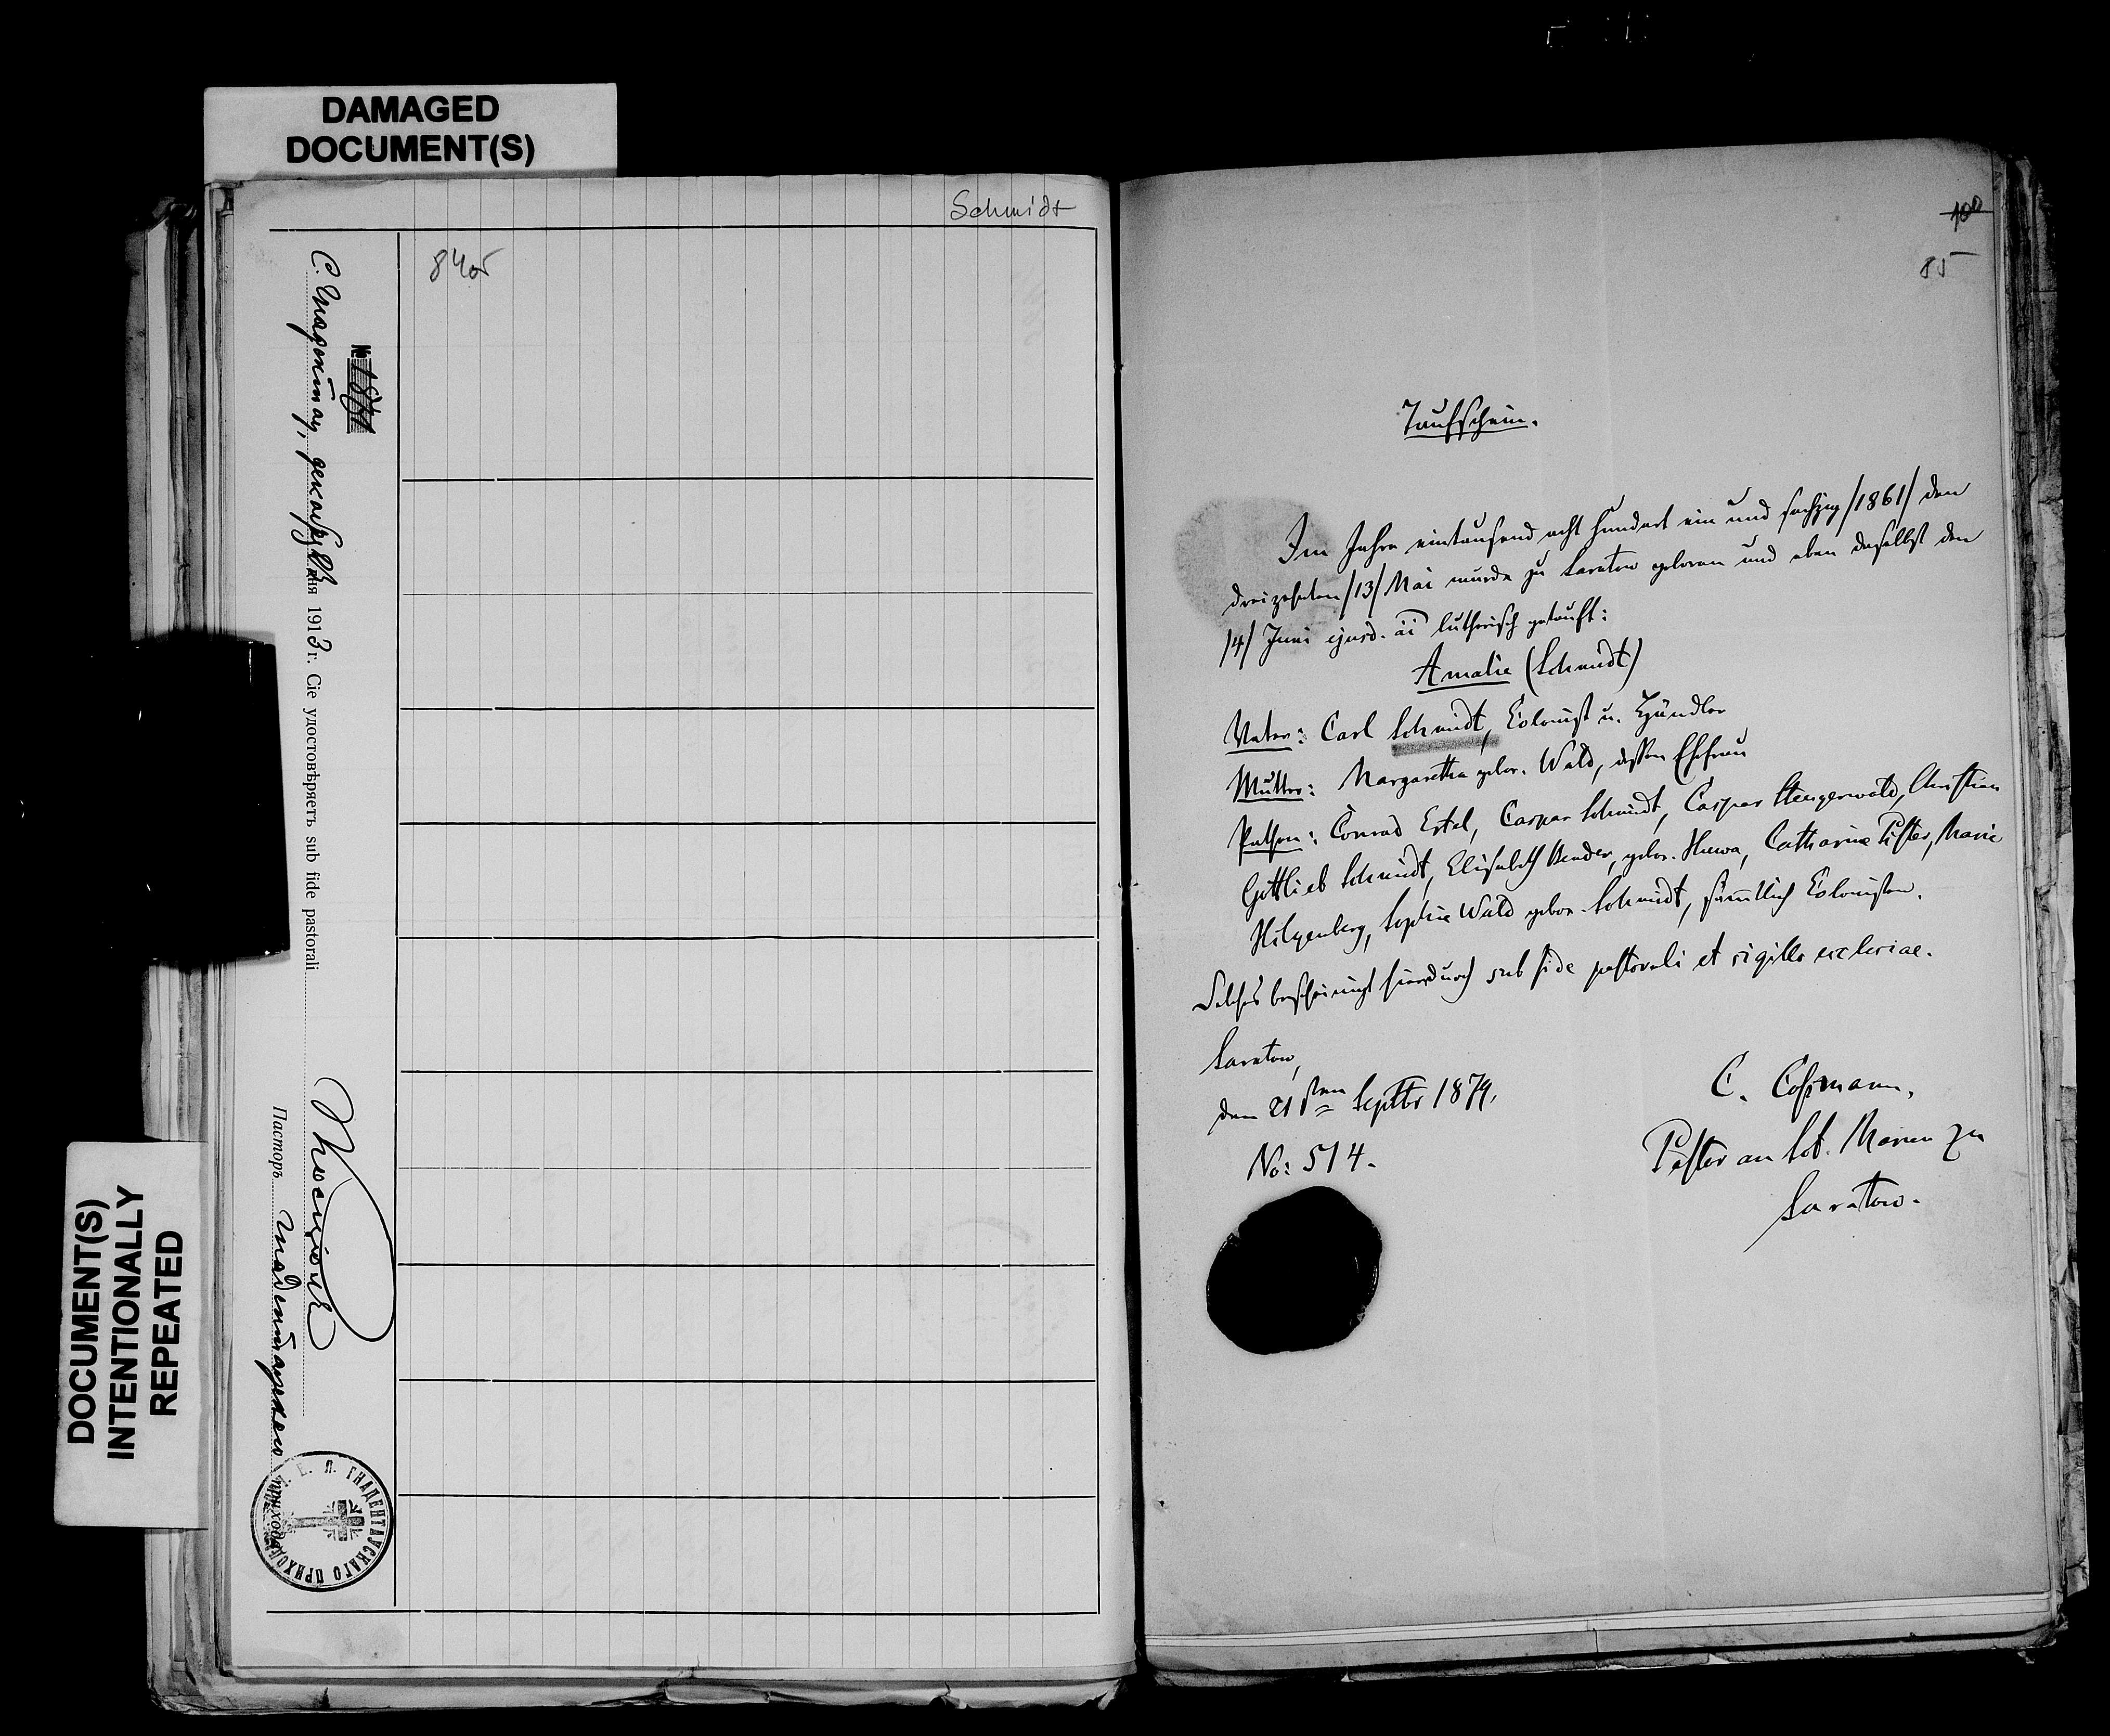 DAMAGED
DOCUMENT(S)
Schmidt
84об
№ 1871
С. Гнадентау, декабря дня 1913 г. Сіе удостовѣряетъ sub fide pastorali
Пасторъ Гнадентауского
прихода
Е. Л. ГНАДЕНТАУСКАГО ПРИХОДА
DOCUMENT(S)
INTENTIONALLY
REPEATED
100
85
Taufschein.
Im Jahre eintausend acht hundert ein und sechzig /1861/ den
dreizehnten /13/ Mai wurde zu Saratow geboren und eben daselbst den
/4/ Juni ejusd. ai lutherisch getauft:
Amalie (Schmidt)
Vater: Carl Schmidt, Colonist u. Händler
Mutter: Margaretha gebor. Wald, dessen Ehefrau
Pathen: Conrad Ertel, Caspar Schmidt, Caspar Stengerwald, Christian
Gottlieb Schmidt, Elisabeth Bender, gebor. Catharine Pister, Marie
Hilgenberg, Sophie Wald gebor. Schmidt, sämtlich Colonisten.
Solches bescheinigt hierdurch sub fide pastorali et sigillo ecclesiae.
Saratow,
den 21sten Septbr 1879.
No: 514.
C. Coßmann,
Pastor an St. Marien zu
Saratow.